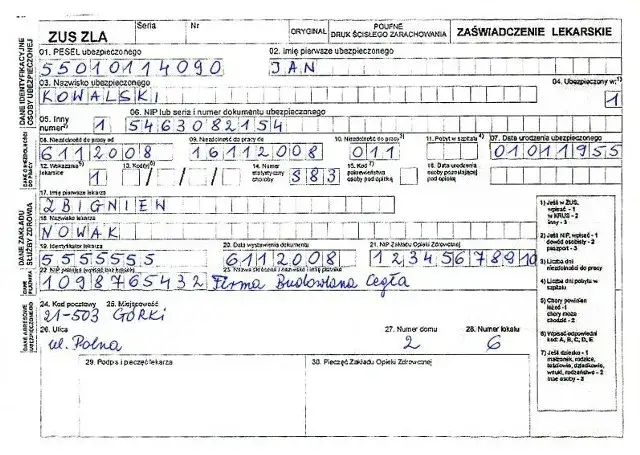 ZUS ZLA
Seria
Nr
ORYGINAŁ
POUFNE
DRUK ŚCISŁEGO ZARACHOWANIA
ZAŚWIADCZENIE LEKARSKIE
DANE IDENTYFIKACYJNE
OSOBY UBEZPIECZONEJ
01. PESEL ubezpieczonego
02. Imię pierwsze ubezpieczonego
55010114090
JAN
03. Nazwisko ubezpieczonego
04. Ubezpieczony w:1)
KOWALSKI
1
05. Inny
numer2)
1
06. NIP lub seria i numer dokumentu ubezpieczonego
5463082154
08. Niezdolność do pracy od
09. Niezdolność do pracy do
10. Niezdolność do pracy3)
11. Pobyt w szpitalu4)
07. Data urodzenia ubezpieczonego
6112008
16112008
011
01011955
12. Wskazania5)
lekarskie
1
13. Kod(y)6)
14. Numer
statystyczny
choroby
S83
15. Kod7)
pokrewieństwa
osoby pod opieką
16. Data urodzenia
osoby pozostającej
pod opieką
DANE ZAKŁADU
SŁUŻBY ZDROWIA
17. Imię pierwsze lekarza
ZBIGNIEW
18. Nazwisko lekarza
NOWAK
19. Identyfikator lekarza
20. Data wystawienia dokumentu
21. NIP Zakładu Opieki Zdrowotnej
5555555
6112008
12345678910
1098765432
Firma Budowlana Cegła
DANE ADRESOWE
UBEZPIECZONEGO
24. Kod pocztowy
25. Miejscowość
21-503 GÓRKI
26. Ulica
27. Numer domu
28. Numer lokalu
ul. Polna
2
6
29. Podpis i pieczęć lekarza
30. Pieczęć Zakładu Opieki Zdrowotnej
1) Jeśli w ZUS,
wpisać - 1
w KRUS - 2
inny - 3
2) Jeśli NIP, wpisać - 1
dowód osobisty - 2
paszport - 3
3) Liczba dni
niezdolności do pracy
4) Liczba dni pobytu w
szpitalu
5) Chory powinien
leżeć - 1
chory może
chodzić - 2
6) Wpisać odpowiedni
kod: A, B, C, D, E
7) Jeśli dziecko - 1
małżonek, rodzice,
teściowie, dziadkowie,
wnuki, rodzeństwo - 2
inne osoby - 3